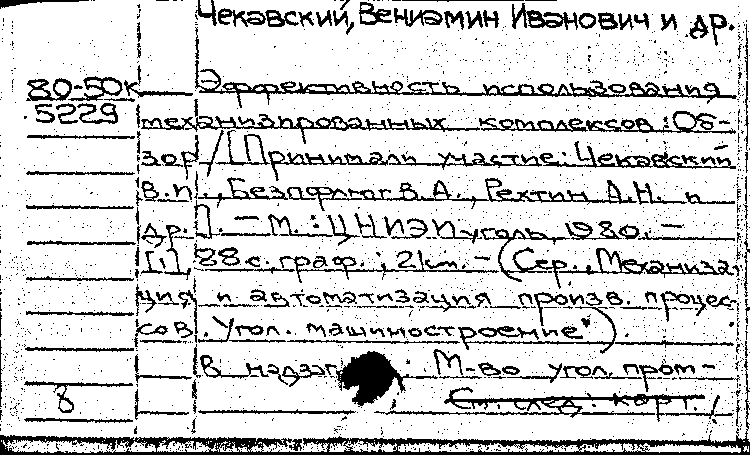 Чекавский, Вениамин Иванович и др.
80-50к Эффективность использования
5229 механизированных комплексов: Об-
зор / [Принимали участие: Чекавский
В.И., Безафлюг В.А., Рехтин А.Н. и
др.]. — М.: ЦНИЭИуголь, 1980. —
[1], 88 с., граф.; 21 см. — (Сер., Механиза
ция и автоматизация произв. процес-
сов. Угол. машиностроение").
В надзаг.: М-во угол. пром-
8 См. след. карт. !